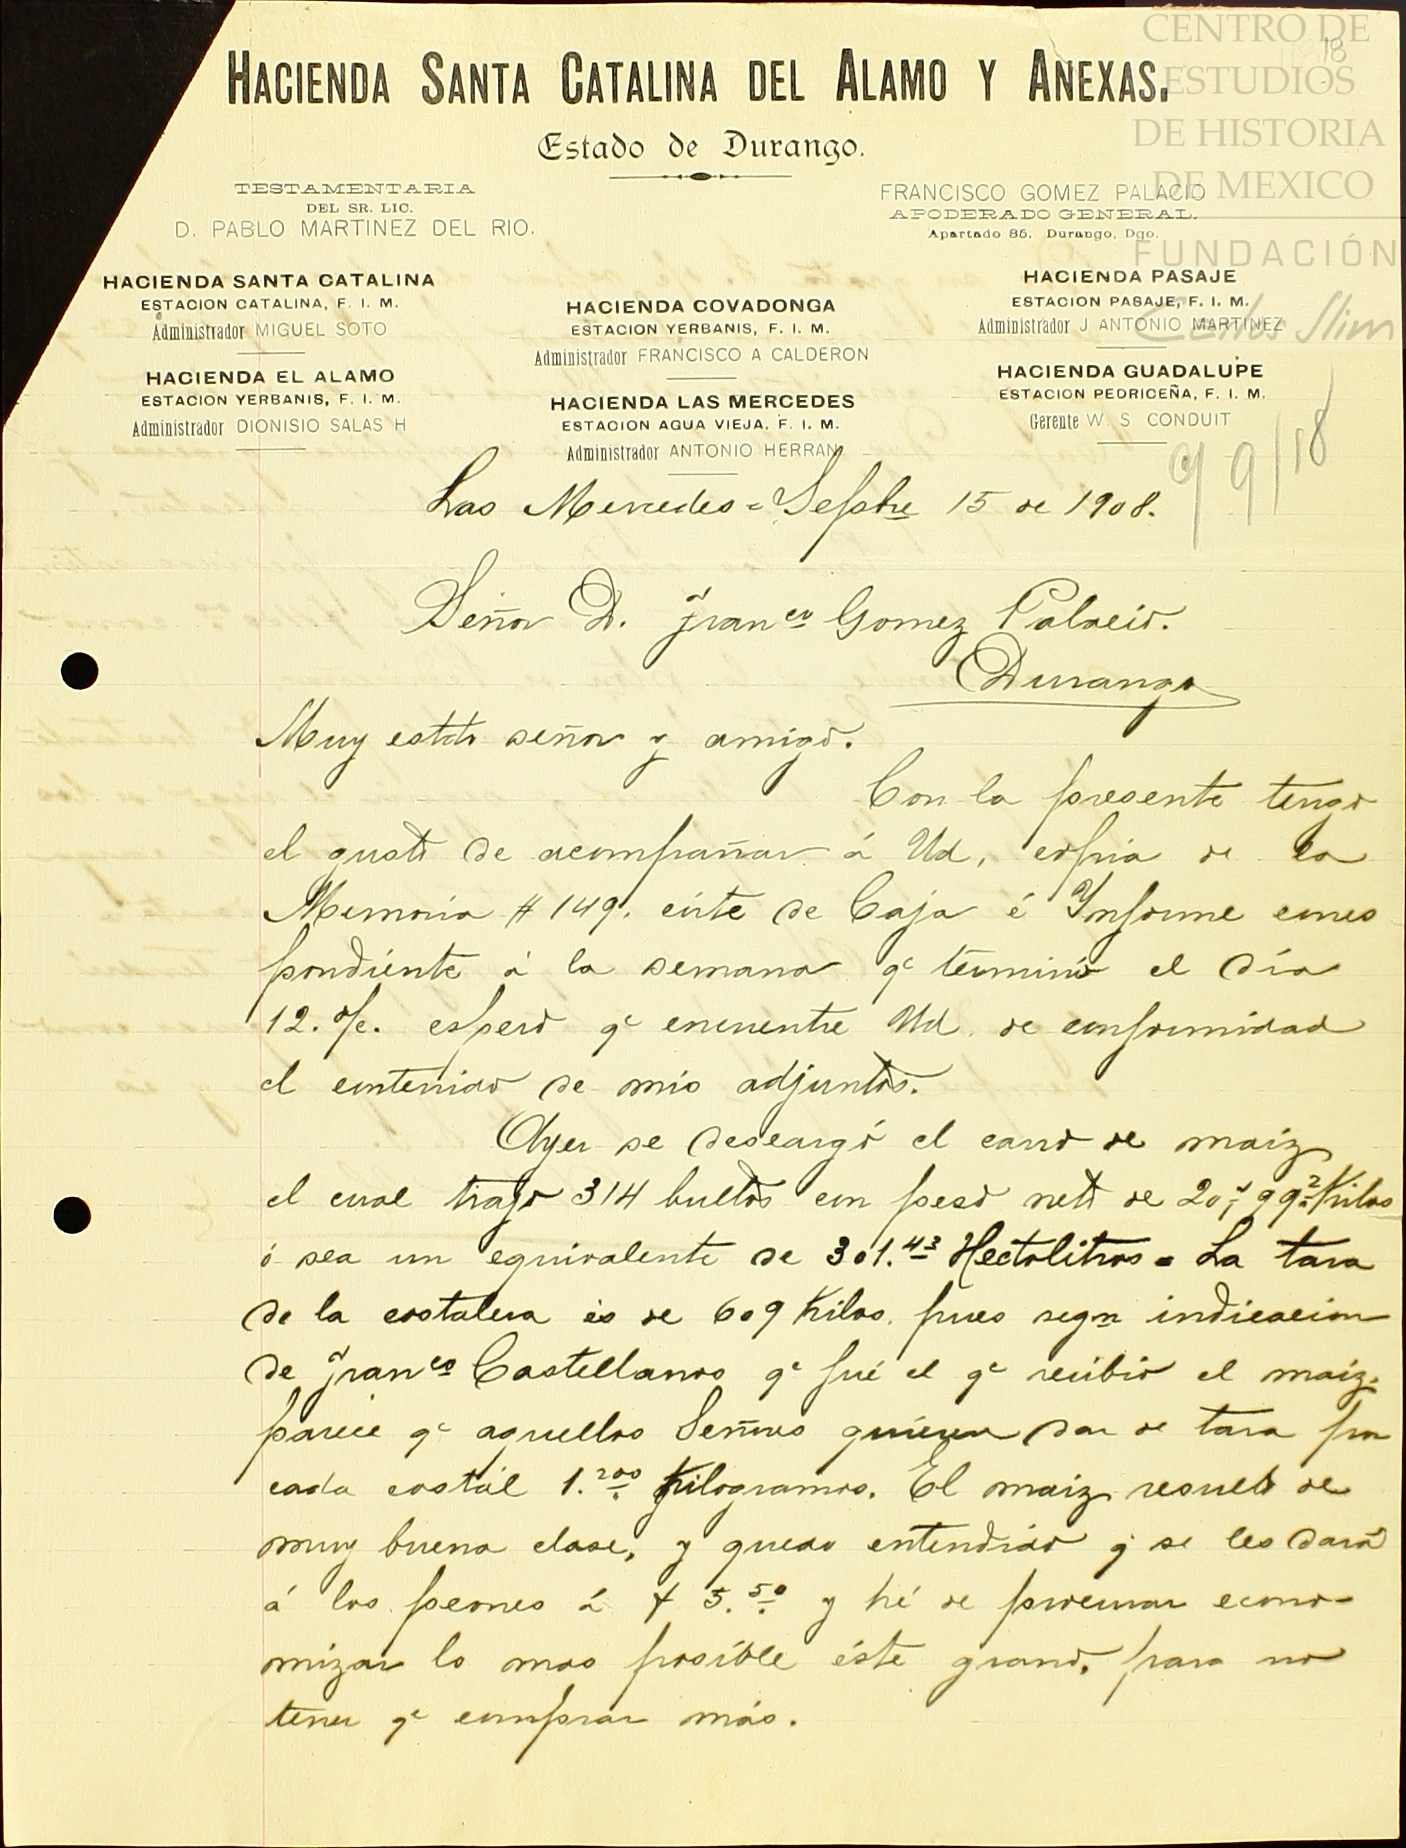 CENTRO DE
ESTUDIOS
DE HISTORIA
DE MEXICO
FUNDACIÓN
Carlos Slim
18
HACIENDA SANTA CATALINA DEL ALAMO Y ANEXAS.
Estado de Durango.
TESTAMENTARIA
DEL SR. LIC.
D. PABLO MARTINEZ DEL RIO.
FRANCISCO GOMEZ PALACIO
APODERADO GENERAL.
Apartado 85. Durango, Dgo.
HACIENDA SANTA CATALINA
ESTACION CATALINA, F. I. M.
Administrador MIGUEL SOTO
HACIENDA EL ALAMO
ESTACION YERBANIS, F. I. M.
Administrador DIONISIO SALAS H
HACIENDA COVADONGA
ESTACION YERBANIS, F. I. M.
Administrador FRANCISCO A CALDERON
HACIENDA LAS MERCEDES
ESTACION AGUA VIEJA, F. I. M.
Administrador ANTONIO HERRAN
HACIENDA PASAJE
ESTACION PASAJE, F. I. M.
Administrador J ANTONIO MARTINEZ
HACIENDA GUADALUPE
ESTACION PEDRICEÑA, F. I. M.
Gerente W. S CONDUIT
Las Mercedes = Sepbre 15 de 1908.
Señor D. Franco Gomez Palacio.
Durango
Muy estdo señor y amigo.
Con la presente tengo
el gusto de acompañar á Ud, copia de la
Memoria # 149. cŕte de Caja é Informe corres
pondiente á la semana qe terminó el día
12. espero qe encuentre Ud. de conformidad
el contenido de mis adjuntos.
Ayer se descargó el carro de maiz
el cual trajo 314 bultos con peso neto de Kilos
ó sea un equivalente de 301.43 Hectolitros = La tara
de la costalera és de 609 Kilos. pues segn indicacion
de Franco Castellanos qe fué el qe recibió el maiz.
parece qe aquellos Señores quieren dar de tara por
cada costál 1.200 Kilogramos. El maiz resultó de
muy buena clase, y quedo entendido q se les dará
á los peones á $ 5.50 y hé de procurar econo-
mizar lo mas posíble éste grano, para no
tener qe comprar más.